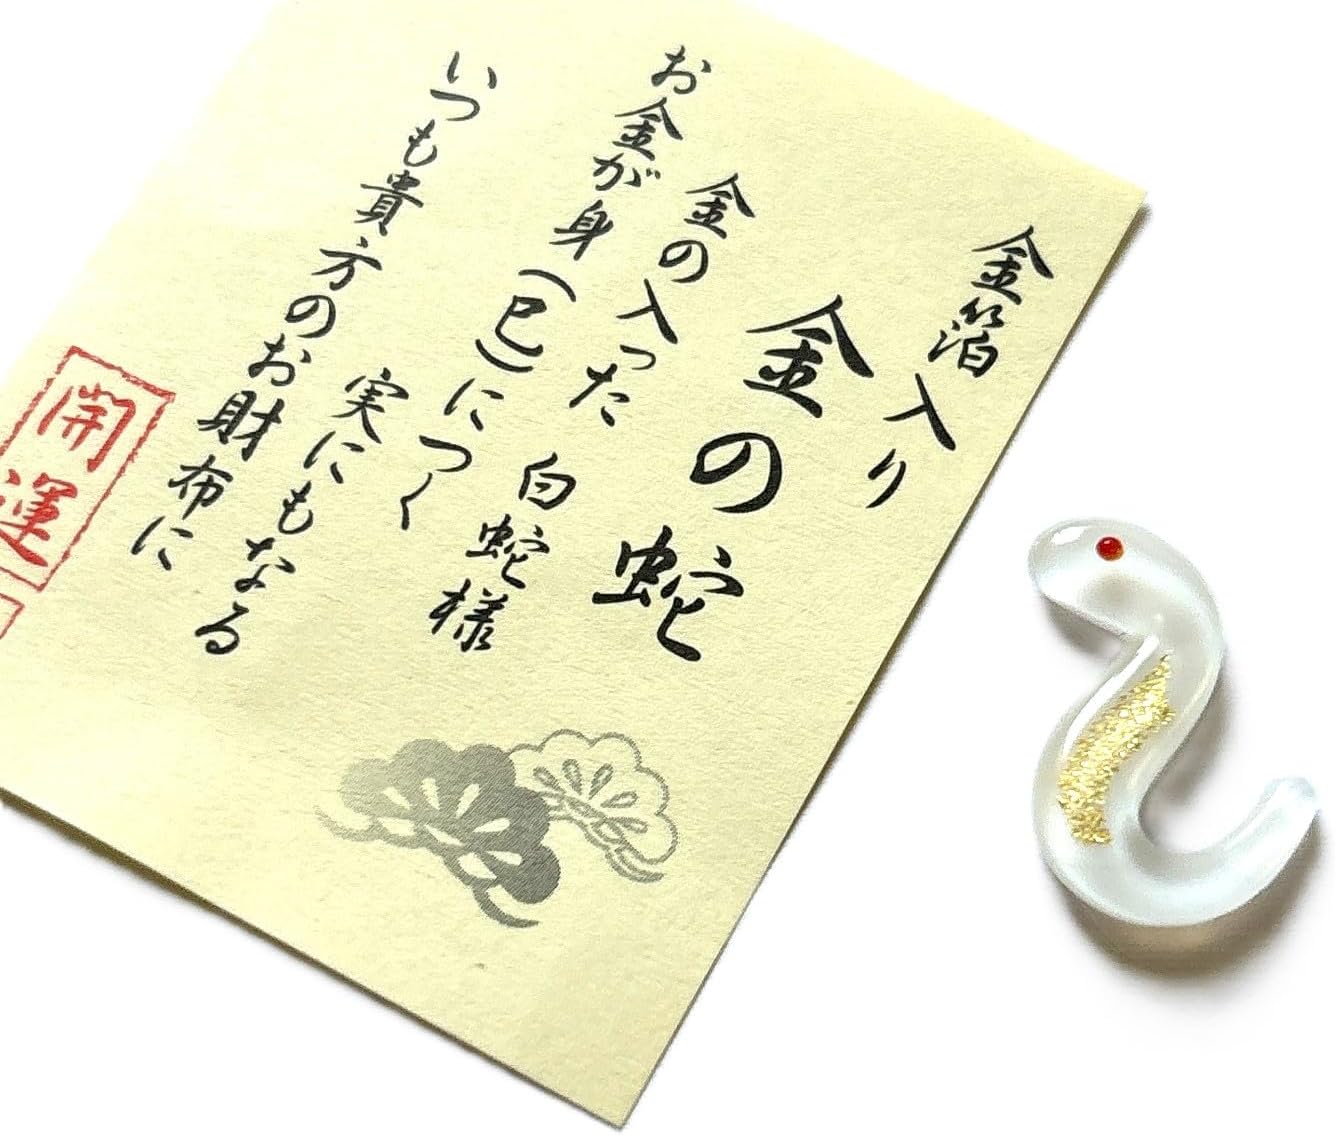 金箔入り
金の蛇
金の入った 白蛇様
お金が身(巳)につく
実にもなる
いつも貴方のお財布に
開運